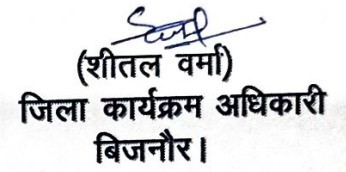 (शीतल वर्मा)
जिला कार्यक्रम अधिकारी
बिजनौर।